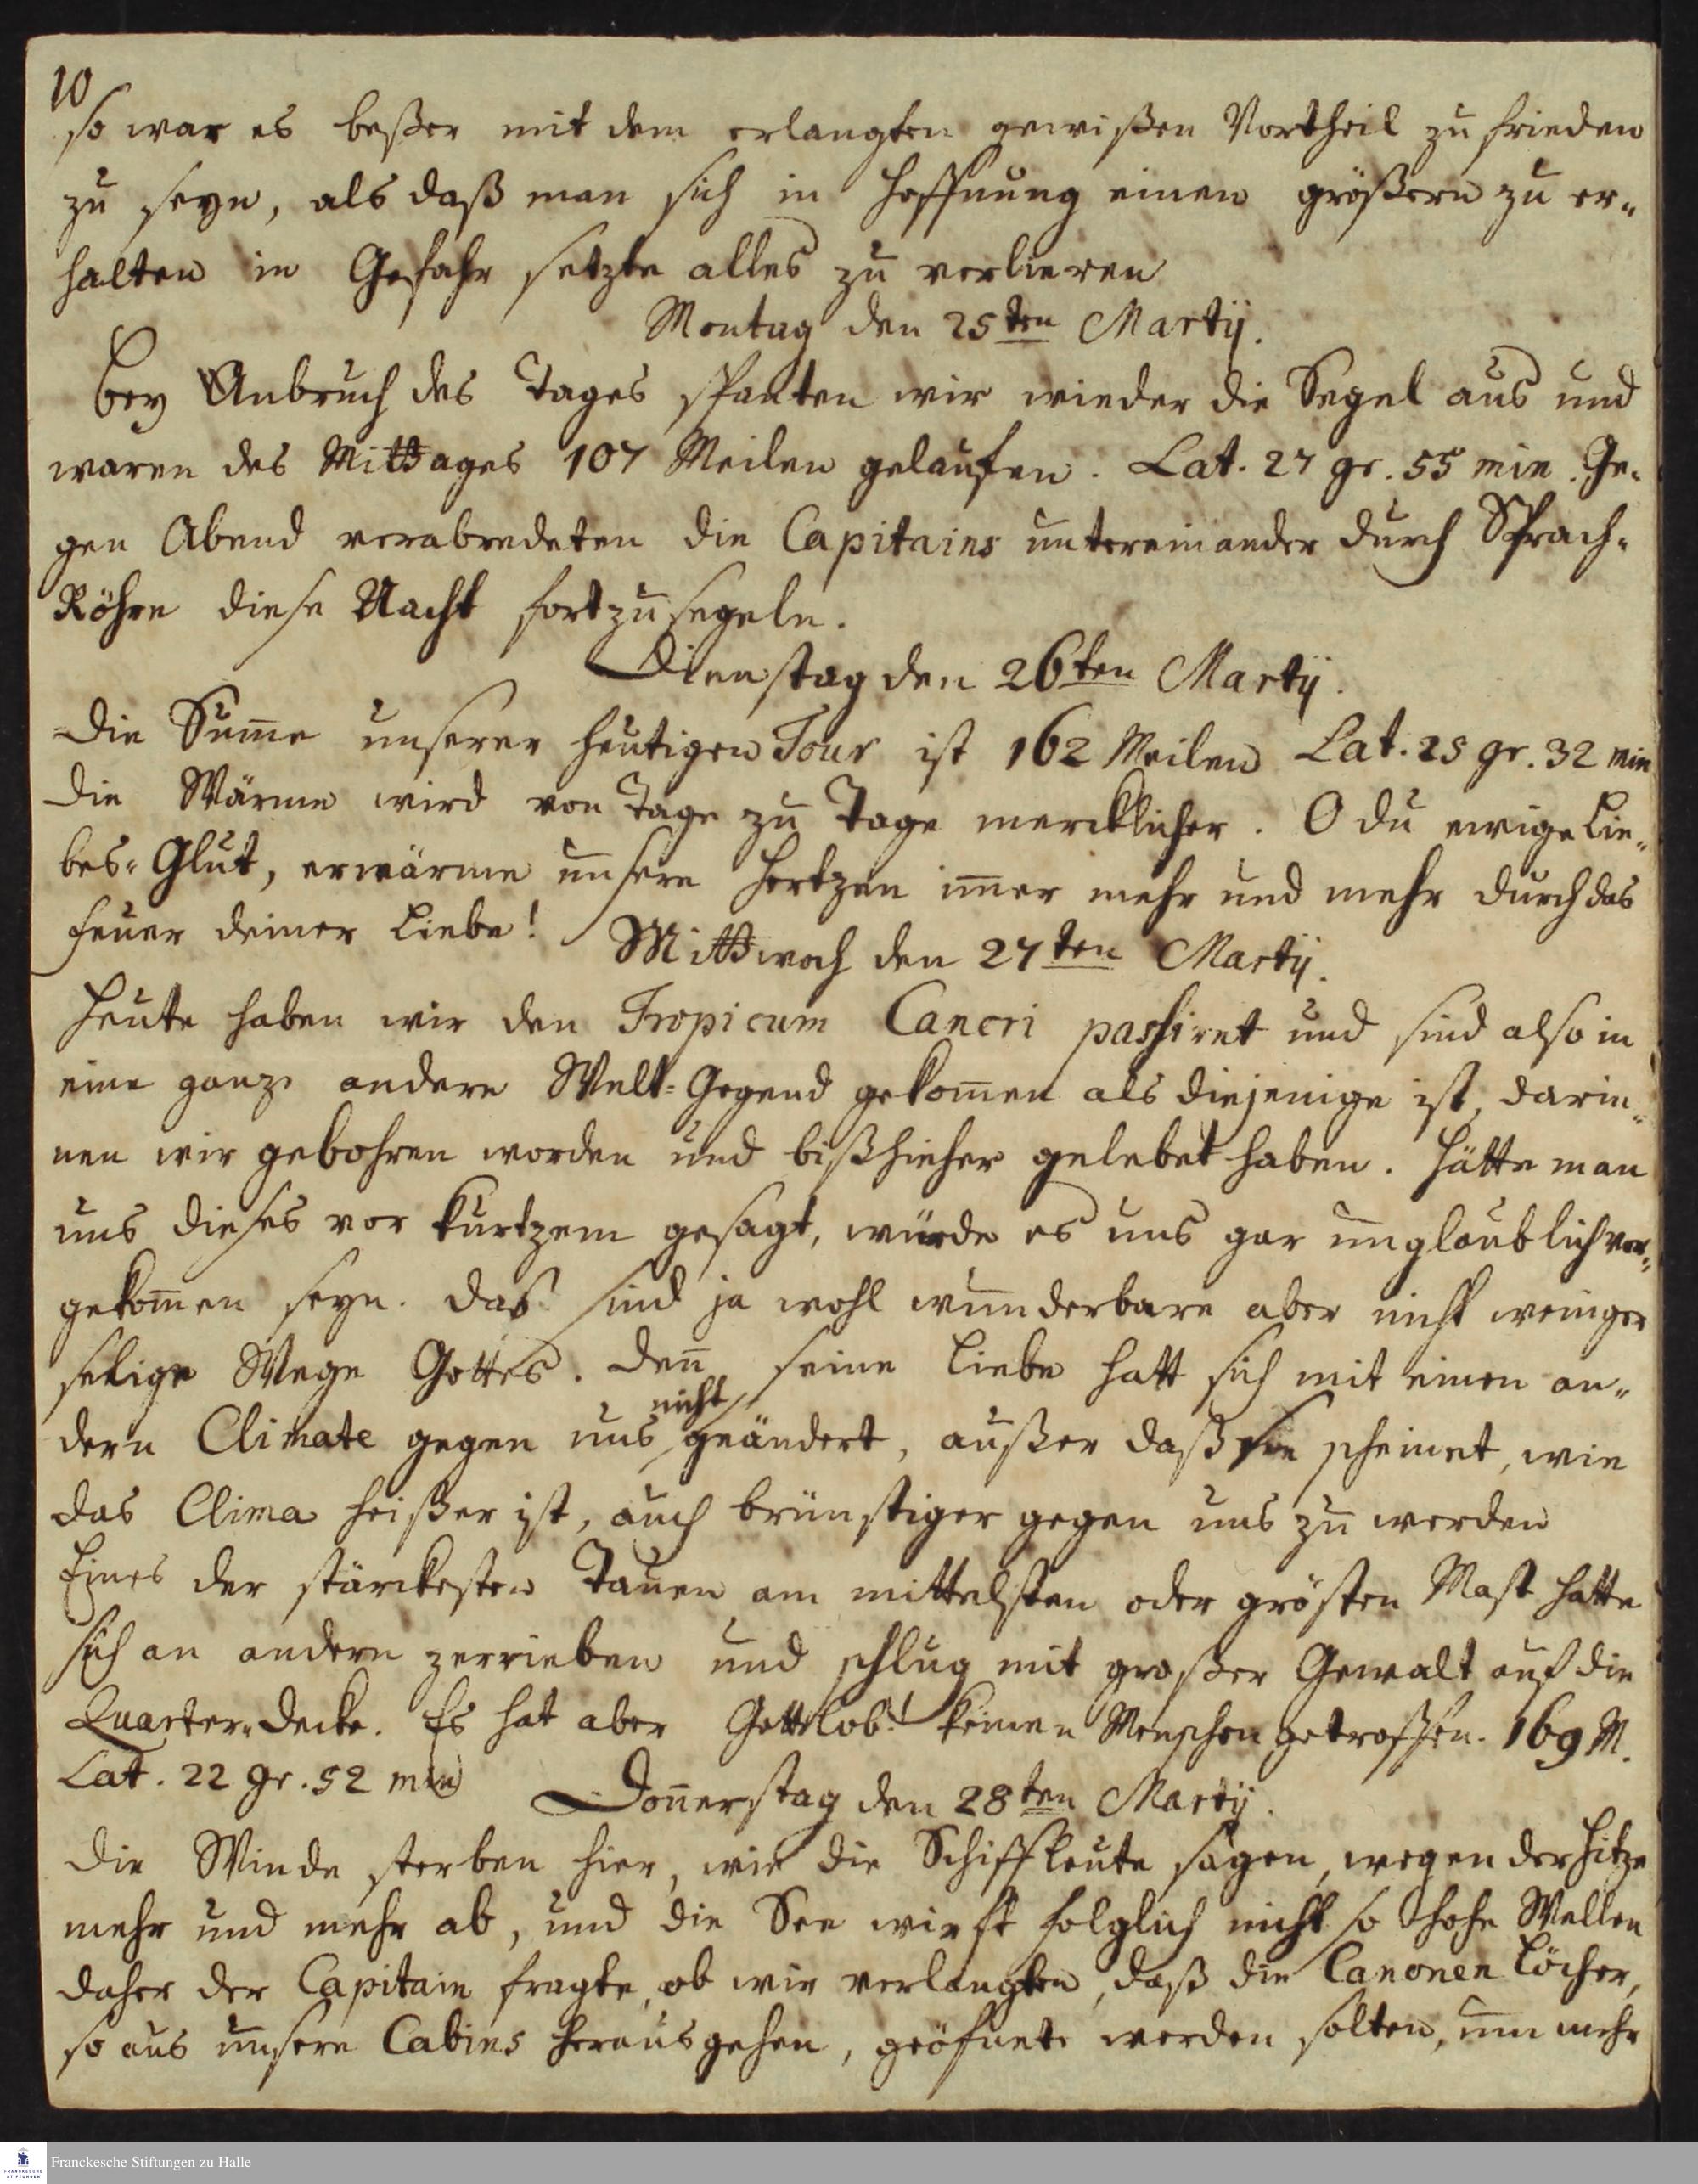 10
so war es beßer mit dem erlangten gewißen Vortheil zu frieden
zu seyn, als daß man sich in Hoffnung einen größern zu er-
halten in Gefahr setzte alles zu verlieren
Montag den 25ten Martij.
Bey Anbruch des Tages spanten wir wieder die Segel aus und
waren des Mittages 107 Meilen gelaufen. Lat. 27 gr. 55 min. Ge-
gen Abend verabredeten die Capitains untereinander durch Sprach-
Röhre diese Nacht fortzusegeln.
Dienstag den 26ten Martij.
Die Sum̄e unserer heutigen Tour ist 162 Meilen Lat. 25 gr. 32 min
Die Wärme wird von Tage zu Tage mercklicher. O du ewige Lie-
bes-Glut, erwärme unsere Hertzen im̄er mehr und mehr durch das
Feuer deiner Liebe!
Mittwoch den 27ten Martij.
Heute haben wir den Tropicum Cancri passiret und sind also in
eine ganz andere Welt-Gegend gekom̄en als diejenige ist, darin-
nen wir gebohren worden und bißhieher gelebet haben. Hätte man
uns dieses vor kurtzem gesagt, würde es uns gar unglaublich vor-
gekom̄en seyn. Das sind ja wohl wunderbare aber nicht weniger
selige Wege Gottes. Den̄ seine Liebe hatt sich mit einen an-
nicht
dern Climate gegen uns geändert, außer daß sie scheinet, wie
das Clima heißer ist, auch brünstiger gegen uns zu werden
Eines der stärckesten Tauen am mittelsten oder grösten Mast hatte
sich an andern zerrieben und schlug mit großer Gewalt auf die
Quarter-Decke. Es hat aber Gottlob! keinen Menschen getroffen. 169 M.
Lat. 22 gr. 52 min
Don̄erstag den 28ten Martij.
Die Winde sterben hier, wie die Schiffleute sagen, wegen der Hitze
mehr und mehr ab, und die See wirft folglich nicht so hohe Wellen
daher der Capitain fragte, ob wir verlangten, daß die Canonen Löcher,
so aus unsern Cabins herausgehen, geöfnet werden solten, um mehr
Franckesche Stiftungen zu Halle
FRANCKESCHE
STIFTUNGEN